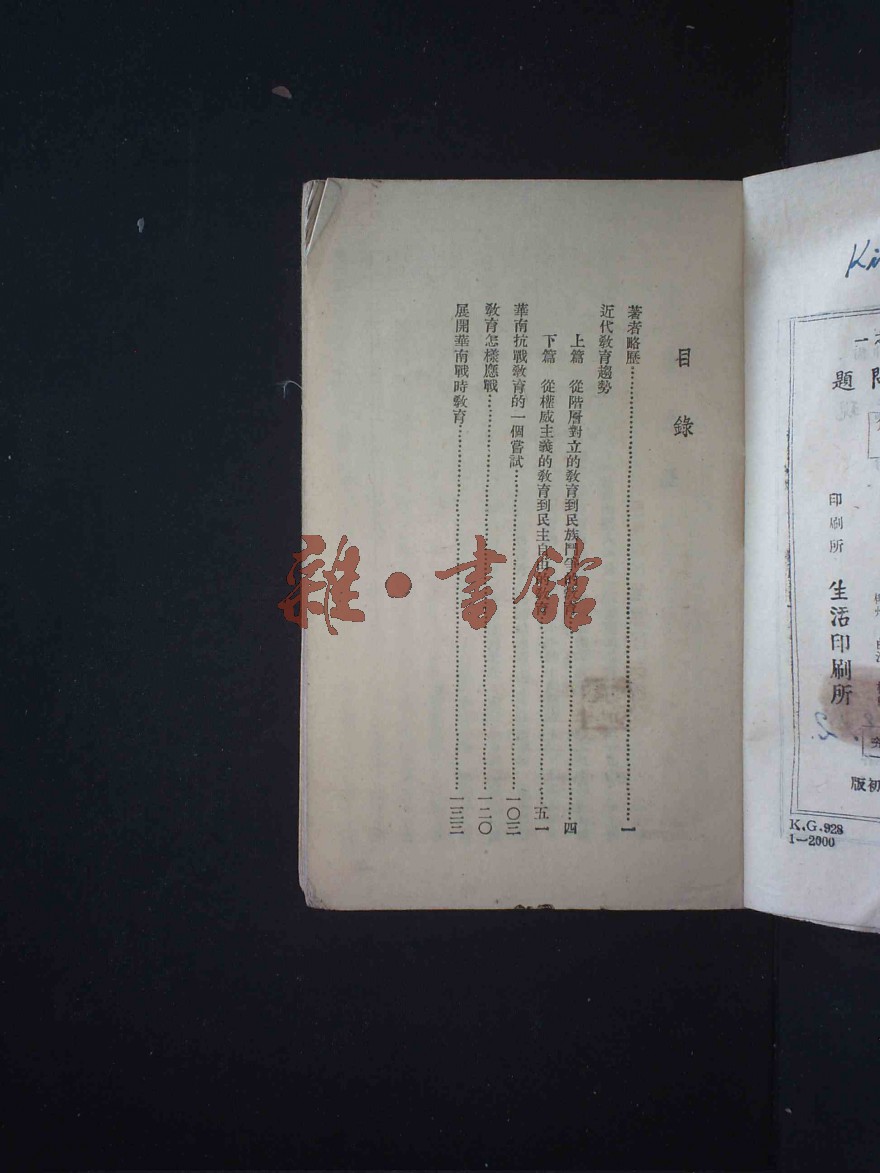 目錄
著者略歷…………一
近代教育趨勢
上篇 從階層對立的教育到民族鬥爭的教育…………四
下篇 從權威主義的教育到民主自由的教育…………五一
華南抗戰教育的一個嘗試…………一〇三
教育怎樣應戰…………一二〇
展開華南戰時教育…………一三三
雜·書館
題
印刷所 生活印刷所
初版
K.G.928
1—2000